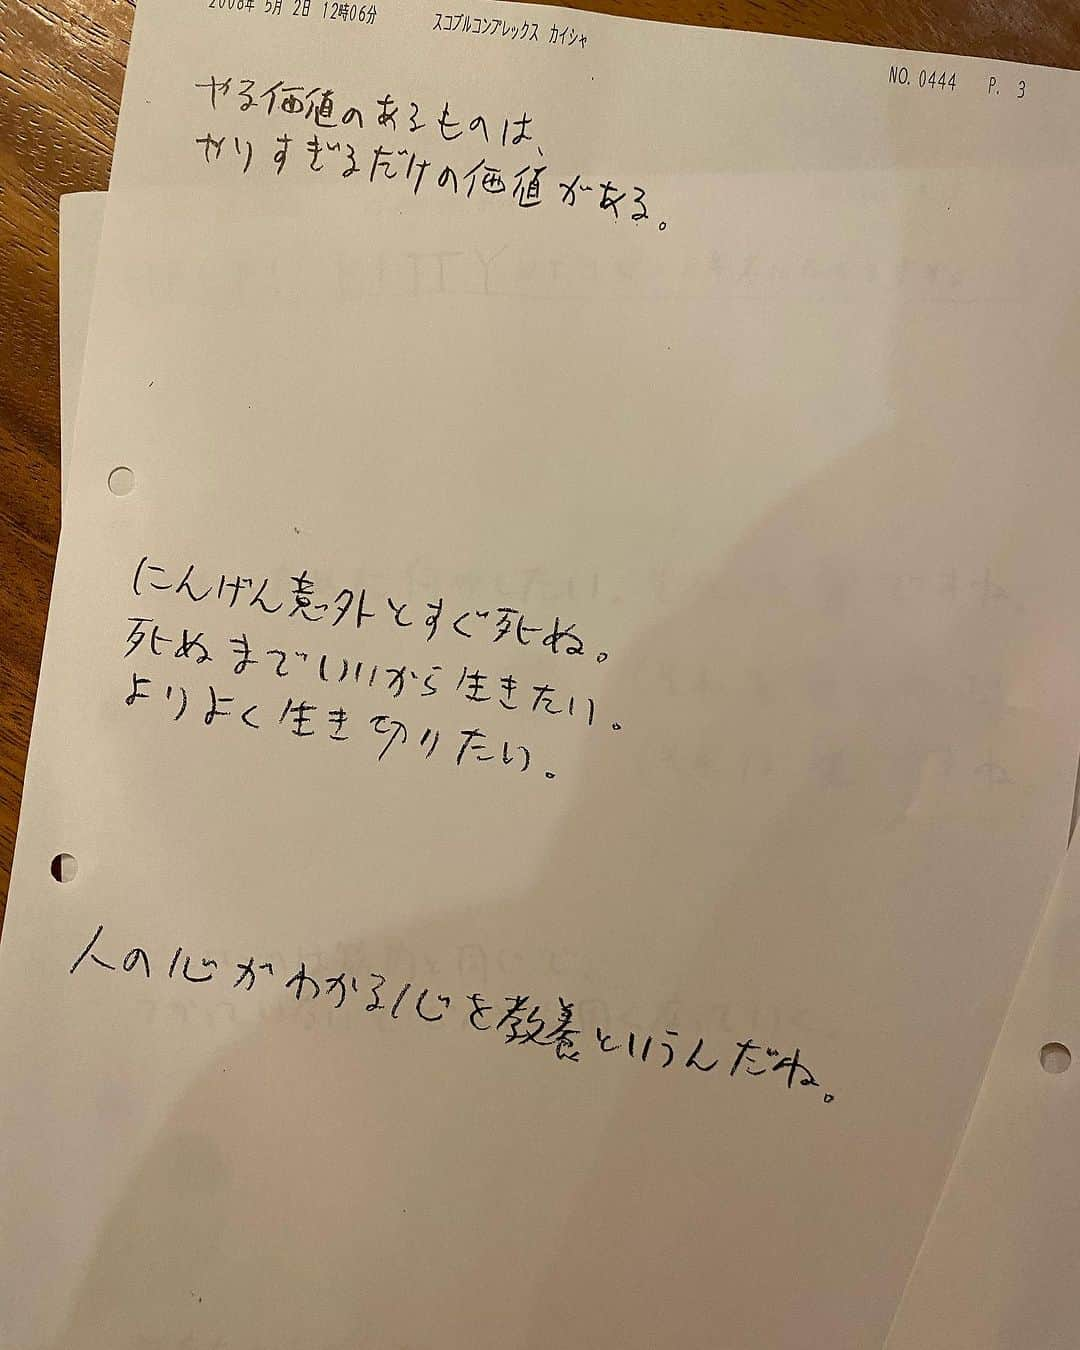 2008年 5月 2日 12時06分 スコブルコンプレックス カイシャ NO. 0444 P. 3
やる価値のあるものは、
やりすぎるだけの価値がある。
にんげん意外とすぐ死ぬ。
死ぬまでいいから生きたい。
よりよく生き切りたい。
人の心がわかる心を教養というんだね。